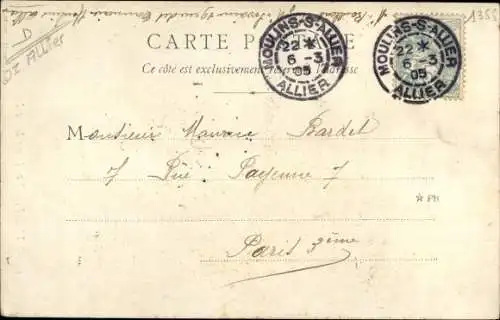 D
Allier
1353
CARTE POSTALE
Ce côté est exclusivement réservé à l'adresse
MOULINS-S-ALLIER
22 *
6 -3
05
ALLIER
MOULINS-S-ALLIER
22 *
6 -3
05
ALLIER
Monsieur Maurice Bardet
7 Rue Payenne 7
* PH
Paris 3ème